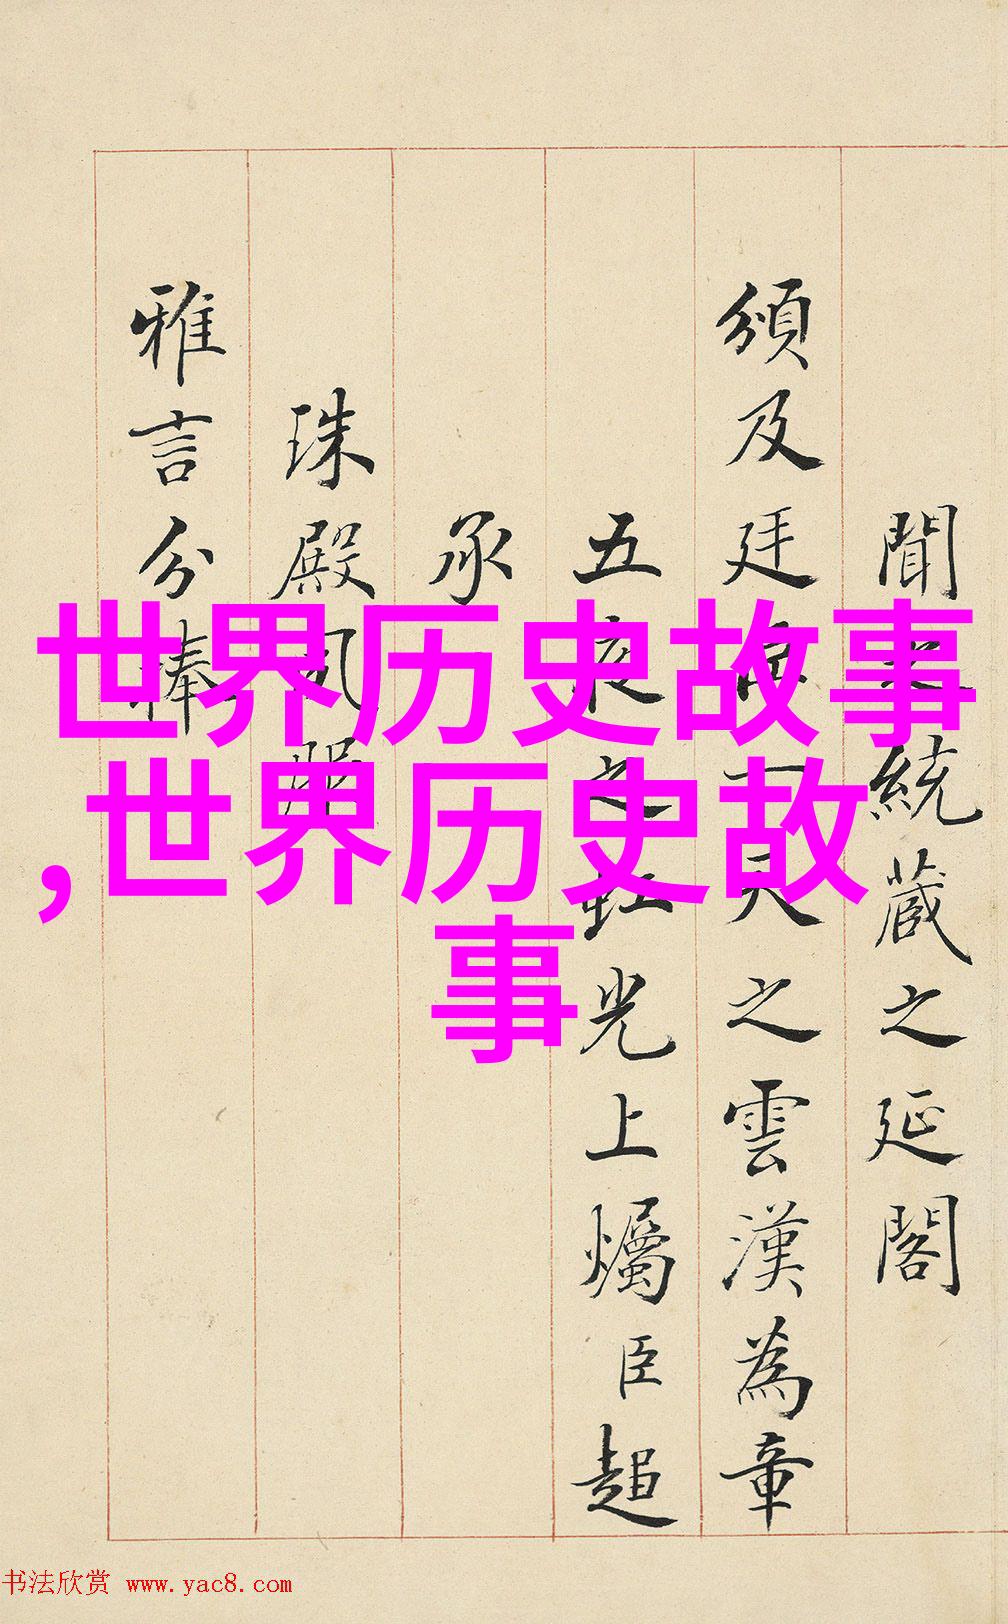 聞之統藏之延閣
頒及廷臣一天之雲漢為章
五夜之虹光上燭臣超
承
珠殿風
雅言分捧
世界历史故事
,世界历史故
事
书法欣赏 www.yac8.com